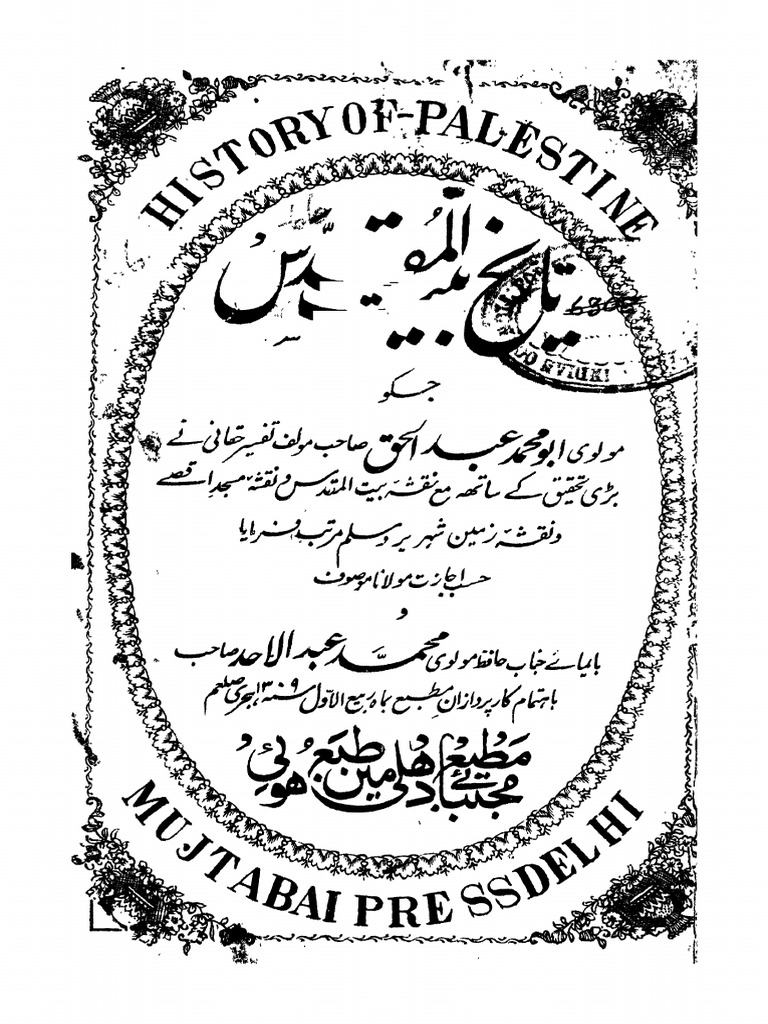 HISTORY OF-PALESTINE
تاریخ بیت المقدس
جسکو
مولوی ابو محمد عبد الحق صاحب مولف تفسیر حقانی نے
بڑی تحقیق کے ساتھ مع نقشہ بیت المقدس و نقشہ مسجد اقصے
و نقشہ زمین شہر یروسلم مرتب فرمایا
حسب اجازت مولانا موصوف
و
بایمائے جناب حافظ مولوی محمد عبد الاحد صاحب
باہتمام کارپردازان مطبع بماہ ربیع الاول سنہ ۱۳۰۹ ہجری صلعم
مطبع مجتبائے دھلی مین طبع ہوئی
MUJTABAI PRESS DELHI